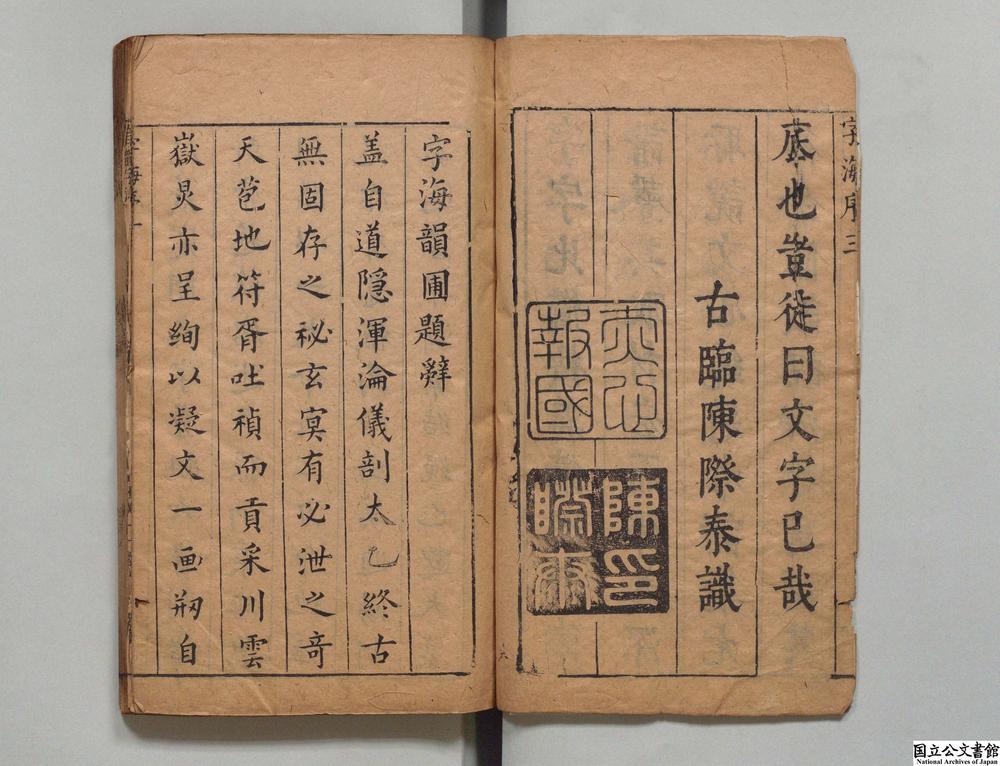 字海序三
底也豈徒曰文字已哉
古臨陳際泰識
赤心報國
陳印際泰
字海韻圃題辭
盖自道隱渾淪儀剖太乙終古
無固存之祕玄冥有必泄之奇
天苞地符胥吐禎而貢采川雲
嶽炅亦呈絢以凝文一画刱自
国立公文書館
National Archives of Japan